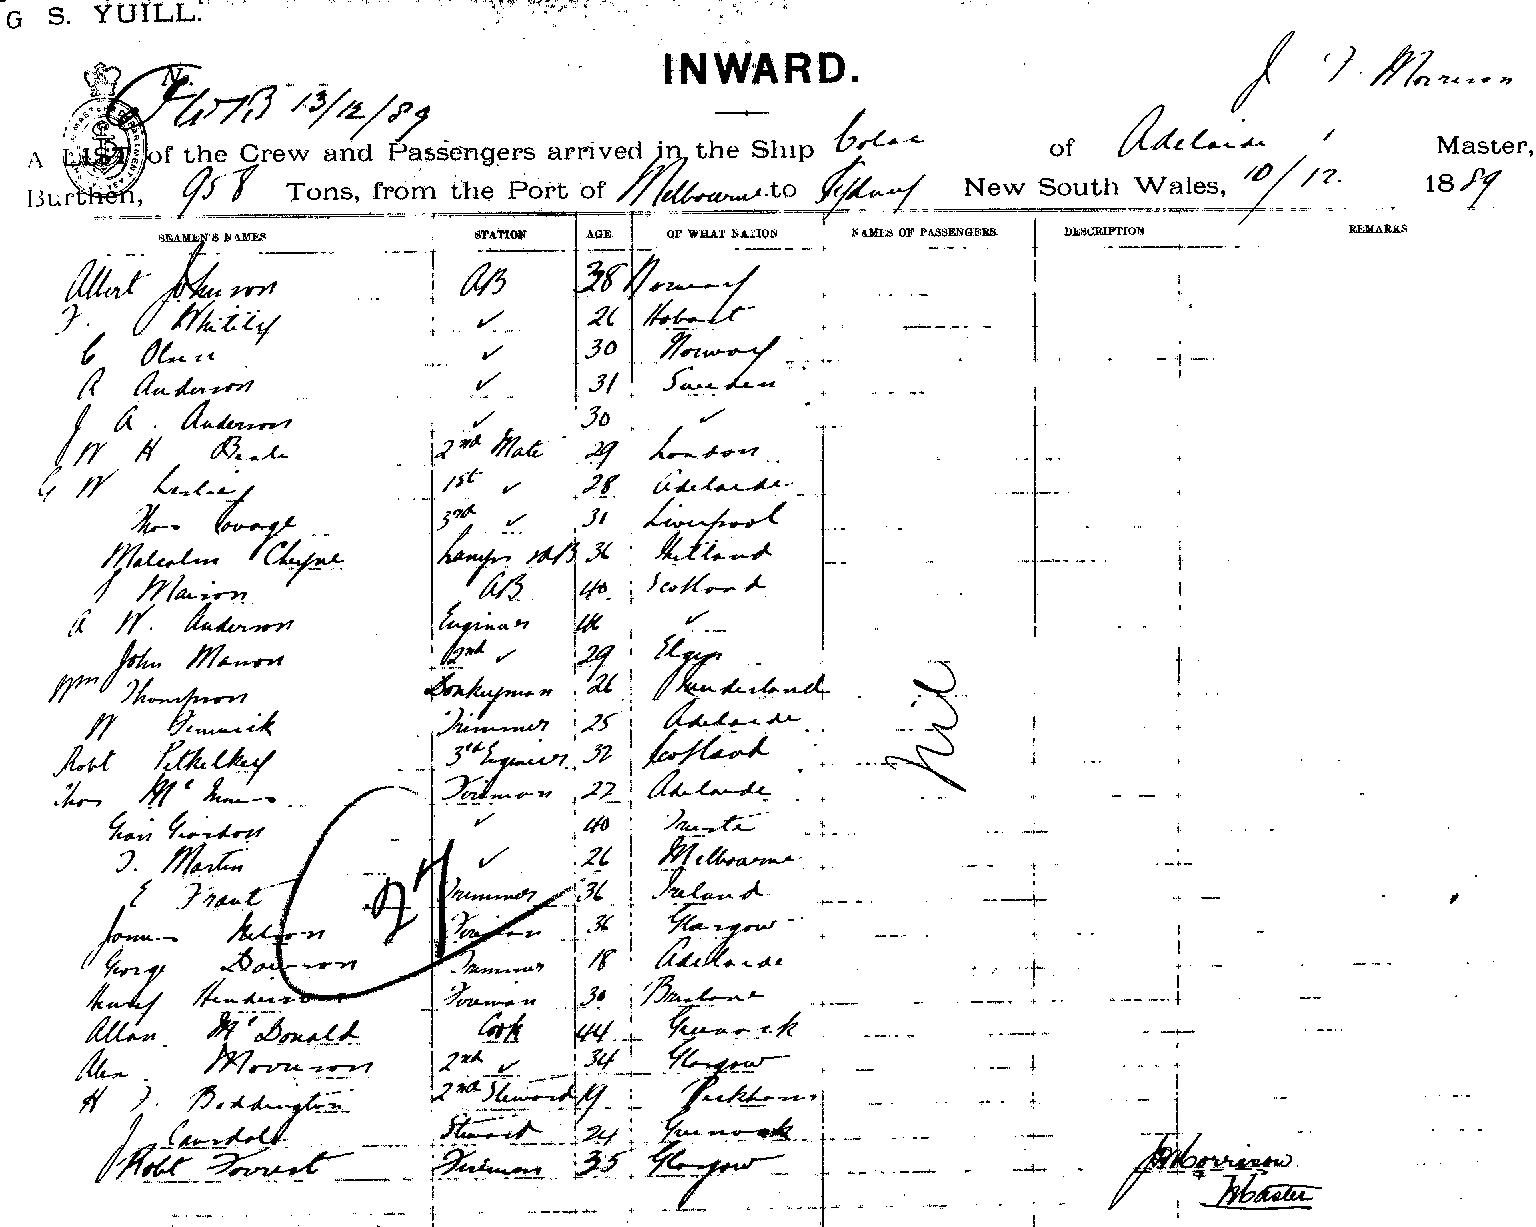 G S. YUILL.
INWARD.
J. F. Morrison
13/12/89
A LIST of the Crew and Passengers arrived in the Ship Colac of Adelaide, Master,
Burthen, 958 Tons, from the Port of Melbourne to Sydney New South Wales, 10/12. 1889
SEAMEN'S NAMES STATION AGE OF WHAT NATION NAMES OF PASSENGERS DESCRIPTION REMARKS
Albert Johnson AB 38 Norway
✓ 26 Hobart
C Olsen ✓ 30 Norway
A Anderson ✓ 31 Sweden
J A. Anderson ✓ 30 ✓
W H Beale 2nd Mate 29 London
G W Leslie 1st ✓ 28 Adelaide
Thos 3rd ✓ 31 Liverpool
Malcolm Cheyne Lamps & AB 36
J AB 40 Scotland
A W. Anderson Engineer ✓
John Manson 2nd ✓ 29 Elgin
Wm Thompson Donkeyman 26 Sunderland
W Trimmer 25 Adelaide
Robt 3rd Engineer 32 Scotland
Thos Fireman 22 Adelaide
✓ 40 Trieste
T. Martin ✓ 26 Melbourne
E Trimmer 36 Ireland
James Nelson Fireman 36 Glasgow
George Dawson Trimmer 18 Adelaide
Henry Henderson Fireman 30 Brisbane
Allan McDonald Cook 44 Greenock
Alex Morrison 2nd ✓ 34 Glasgow
H T. Boddington 2nd Steward 19 Peckham
J Steward 24 Greenock
Robt Forrest Fireman 35 Glasgow
Nil
27
J Morrison
Master